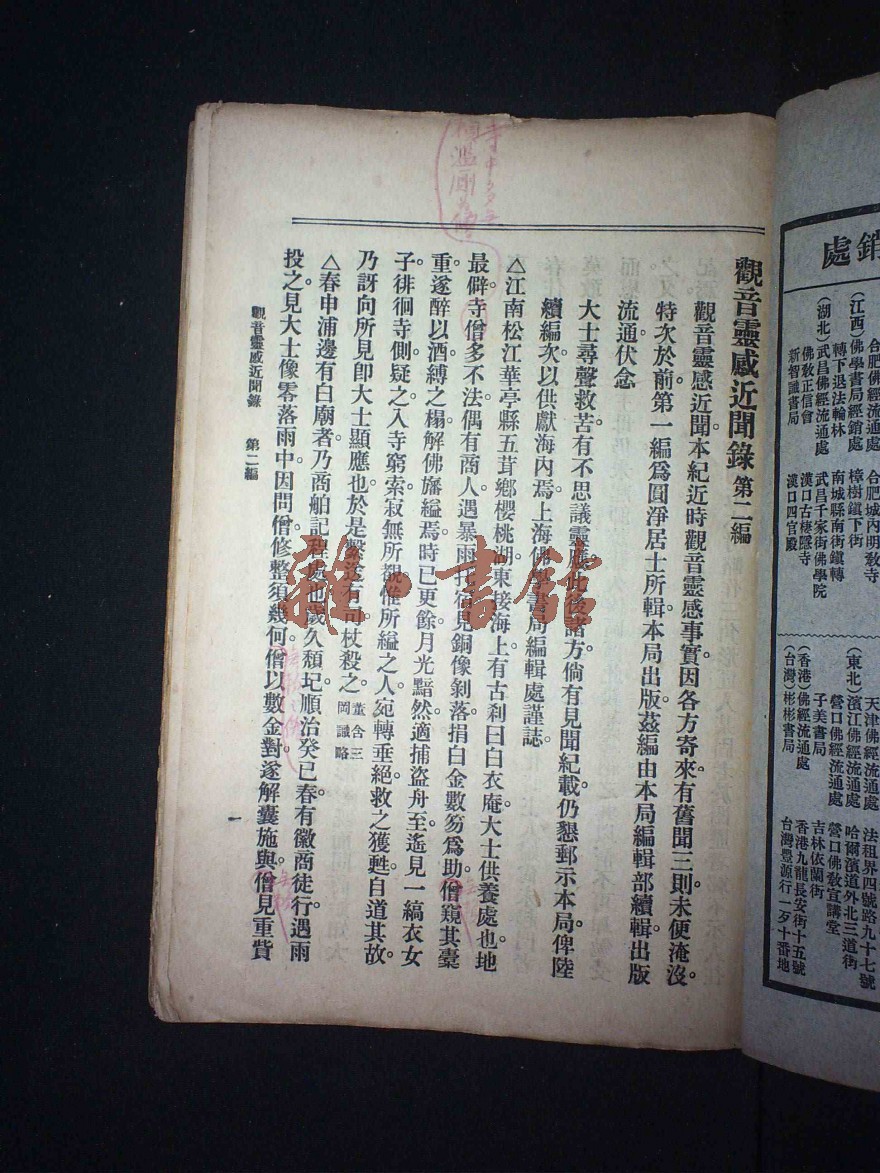 銷處
(江西)佛學書局經銷處
轉下退法輪林
(湖北)武昌佛經流通處
佛敎正信會
新智讖書局
合肥佛經流通處
合肥城內明敎寺
樟樹鎭下街
南城縣南街鎭轉
武昌千家街佛學院
漢口古棲隱寺
漢口四官殿
天津佛經流通處
(東北)濱江佛經流通處
營口佛經流通處
子美書局
(香港)佛經流通處
(台灣)彬彬書局
法租界四號路九十七號
哈爾濱道外北三道街
營口佛敎宣講堂
吉林依蘭街
香港九龍長安街十五號
台灣豐源行一歹十番地
觀音靈感近聞錄 第二編
觀音靈感近聞本紀近時觀音靈感事實因各方寄來有舊聞三則未便淹沒。
特次於前第一編爲圓淨居士所輯本局出版茲編由本局編輯部續輯出版
流通伏念
大士尋聲救苦有不思議靈應此後諸方倘有見聞紀載仍懇郵示本局俾陸
續編次以供獻海內焉上海佛學書局編輯處謹誌。
△江南松江華亭縣五茸鄉櫻桃湖。東接海上有古刹曰白衣庵大士供養處也地
最僻寺僧多不法偶有商人遇暴雨托宿見銅像剝落捐白金數笏爲助。僧窺其橐
重遂醉以酒縛之榻解佛旛縊焉時已更餘月光黯然適捕盜舟至遙見一縞衣女
子徘徊寺側疑之入寺窮索寂無所覩惟所縊之人宛轉垂絕救之獲甦自道其故。
乃訝向所見卽大士顯應也於是繫送有司杖殺之。董含三岡識略
△春申浦邊有白廟者乃商舶記程處也歲久頹圮順治癸巳春有徽商徒行遇雨
投之見大士像零落雨中因問僧修整須幾何僧以數金對遂解囊施與僧見重貲
觀音靈感近聞錄 第二編
一
雜·書館